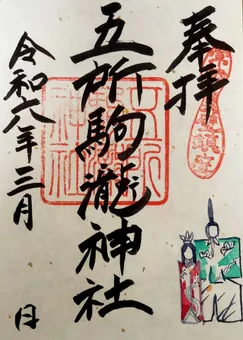 奉拝
五所駒瀧神社
令和六年三月 日